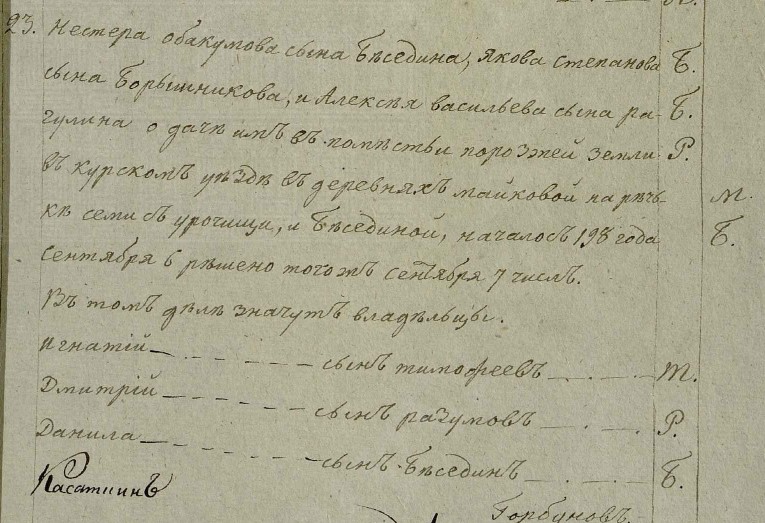 23. Нестера обакумова сына Бѣседина, Якова степанова Б.
сына Борышникова, и Алексѣя васильева сына ра- Б.
гулина о дачѣ имъ въ помѣстьи порозжей земли Р.
въ курскомъ уѣздѣ въ деревняхъ майковой на рѣч- М.
кѣ семи съ урочищи, и Бѣсединой, началось 198 года Б.
сентября 6 рѣшено тогожъ сентября 7 числѣ.
Въ томъ дѣлѣ значутъ владѣльцы.
Игнатій — сынъ тимофеевъ — Т.
Дмитрій — сынъ разумовъ — Р.
Данила — сынъ Бѣсединъ — Б.
Горбуновъ.